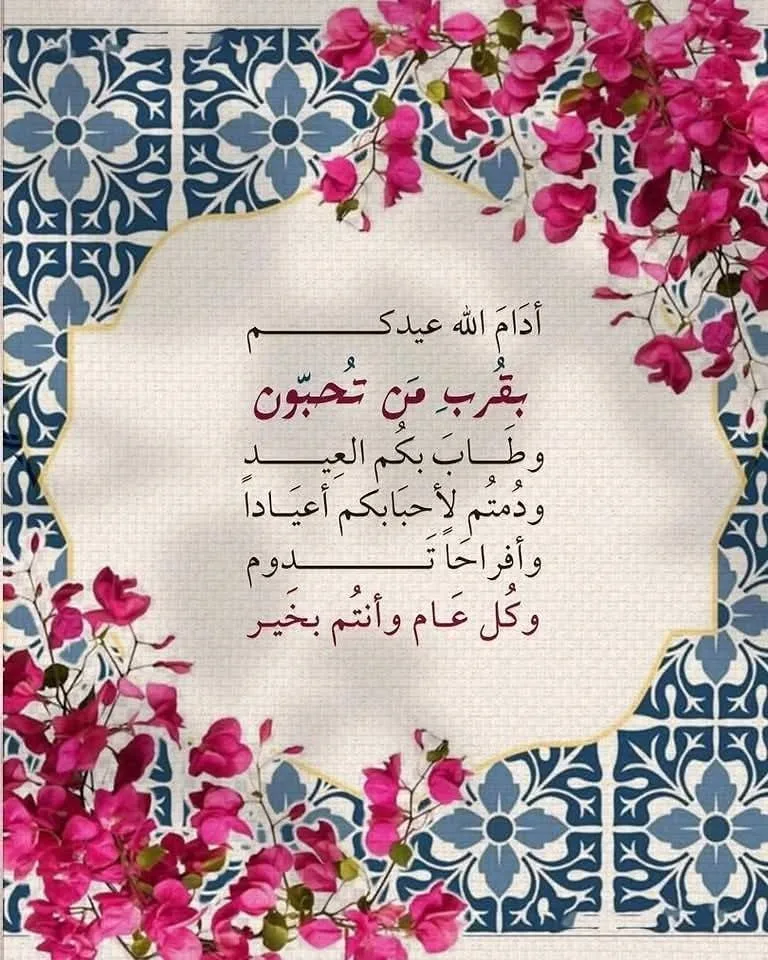 أدَامَ الله عيدكـــــــــم
بقُربِ مَن تُحبّون
وطَـــابَ بكُم العِيـــــد
ودُمتُم لأحبَابكم أعيَـاداً
وأفراحَاً تَـــــــــدوم
وكُل عَـام وأنتُم بخَيـر